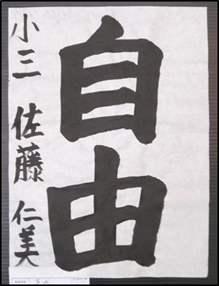 自由
小三 佐藤 仁美